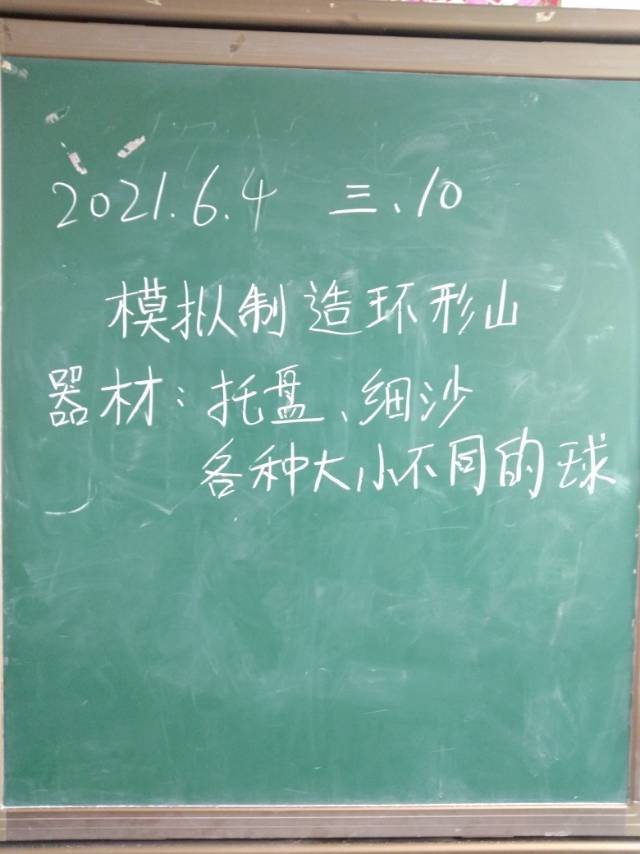 2021.6.4 三、10
模拟制造环形山
器材：托盘、细沙
各种大小不同的球